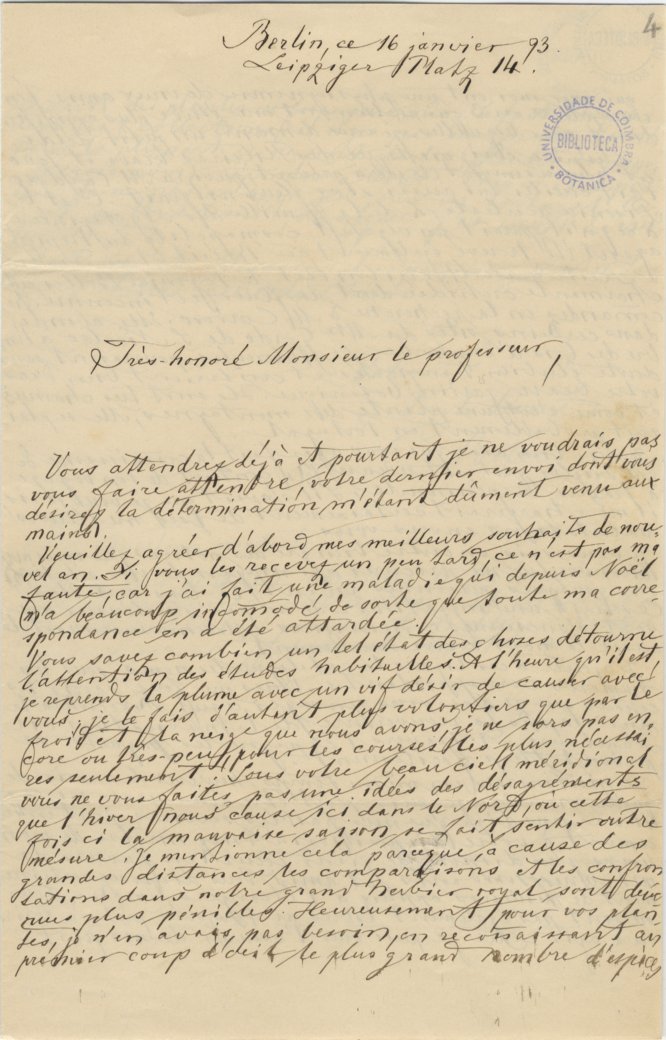 4
Berlin, ce 16 janvier 93.
Leipziger Platz 14.
UNIVERSIDADE DE COIMBRA
BIBLIOTECA
BOTANICA
Très-honoré Monsieur le professeur,
Vous attendrez déjà et pourtant je ne voudrais pas
vous faire attendre, votre dernier envoi dont vous
désirez la détermination m'étant dûment venu aux
mains.
Veuillez agréer d'abord mes meilleurs souhaits de nou-
vel an. Si vous les recevez un peu tard, ce n'est pas ma
faute, car j'ai fait une maladie qui depuis Noël
m'a beaucoup incomodé de sorte que toute ma corre-
spondance en a été attardée.
Vous savez combien un tel état des choses détourne
l'attention des études habituelles. A l'heure qu'il est,
je reprends la plume avec un vif désir de causer avec
vous; je le fais d'autant plus volontiers que par le
froid et la neige que nous avons, je ne sors pas en-
core ou très-peu, pour les courses les plus nécessai-
res seulement. Sous votre beau ciel méridional
vous ne vous faites pas une idée des désagréments
que l'hiver nous cause ici dans le Nord, où cette
fois ci la mauvaise saison se fait sentir outre
mesure. Je mentionne cela parceque, à cause des
grandes distances les comparaisons et les confron
tations dans notre grand herbier royal sont deve
nues plus pénibles. Heureusement pour vos plan
tes, je n'en avais pas besoin, en reconnaissant au
premier coup d'oeil le plus grand nombre d'espèces